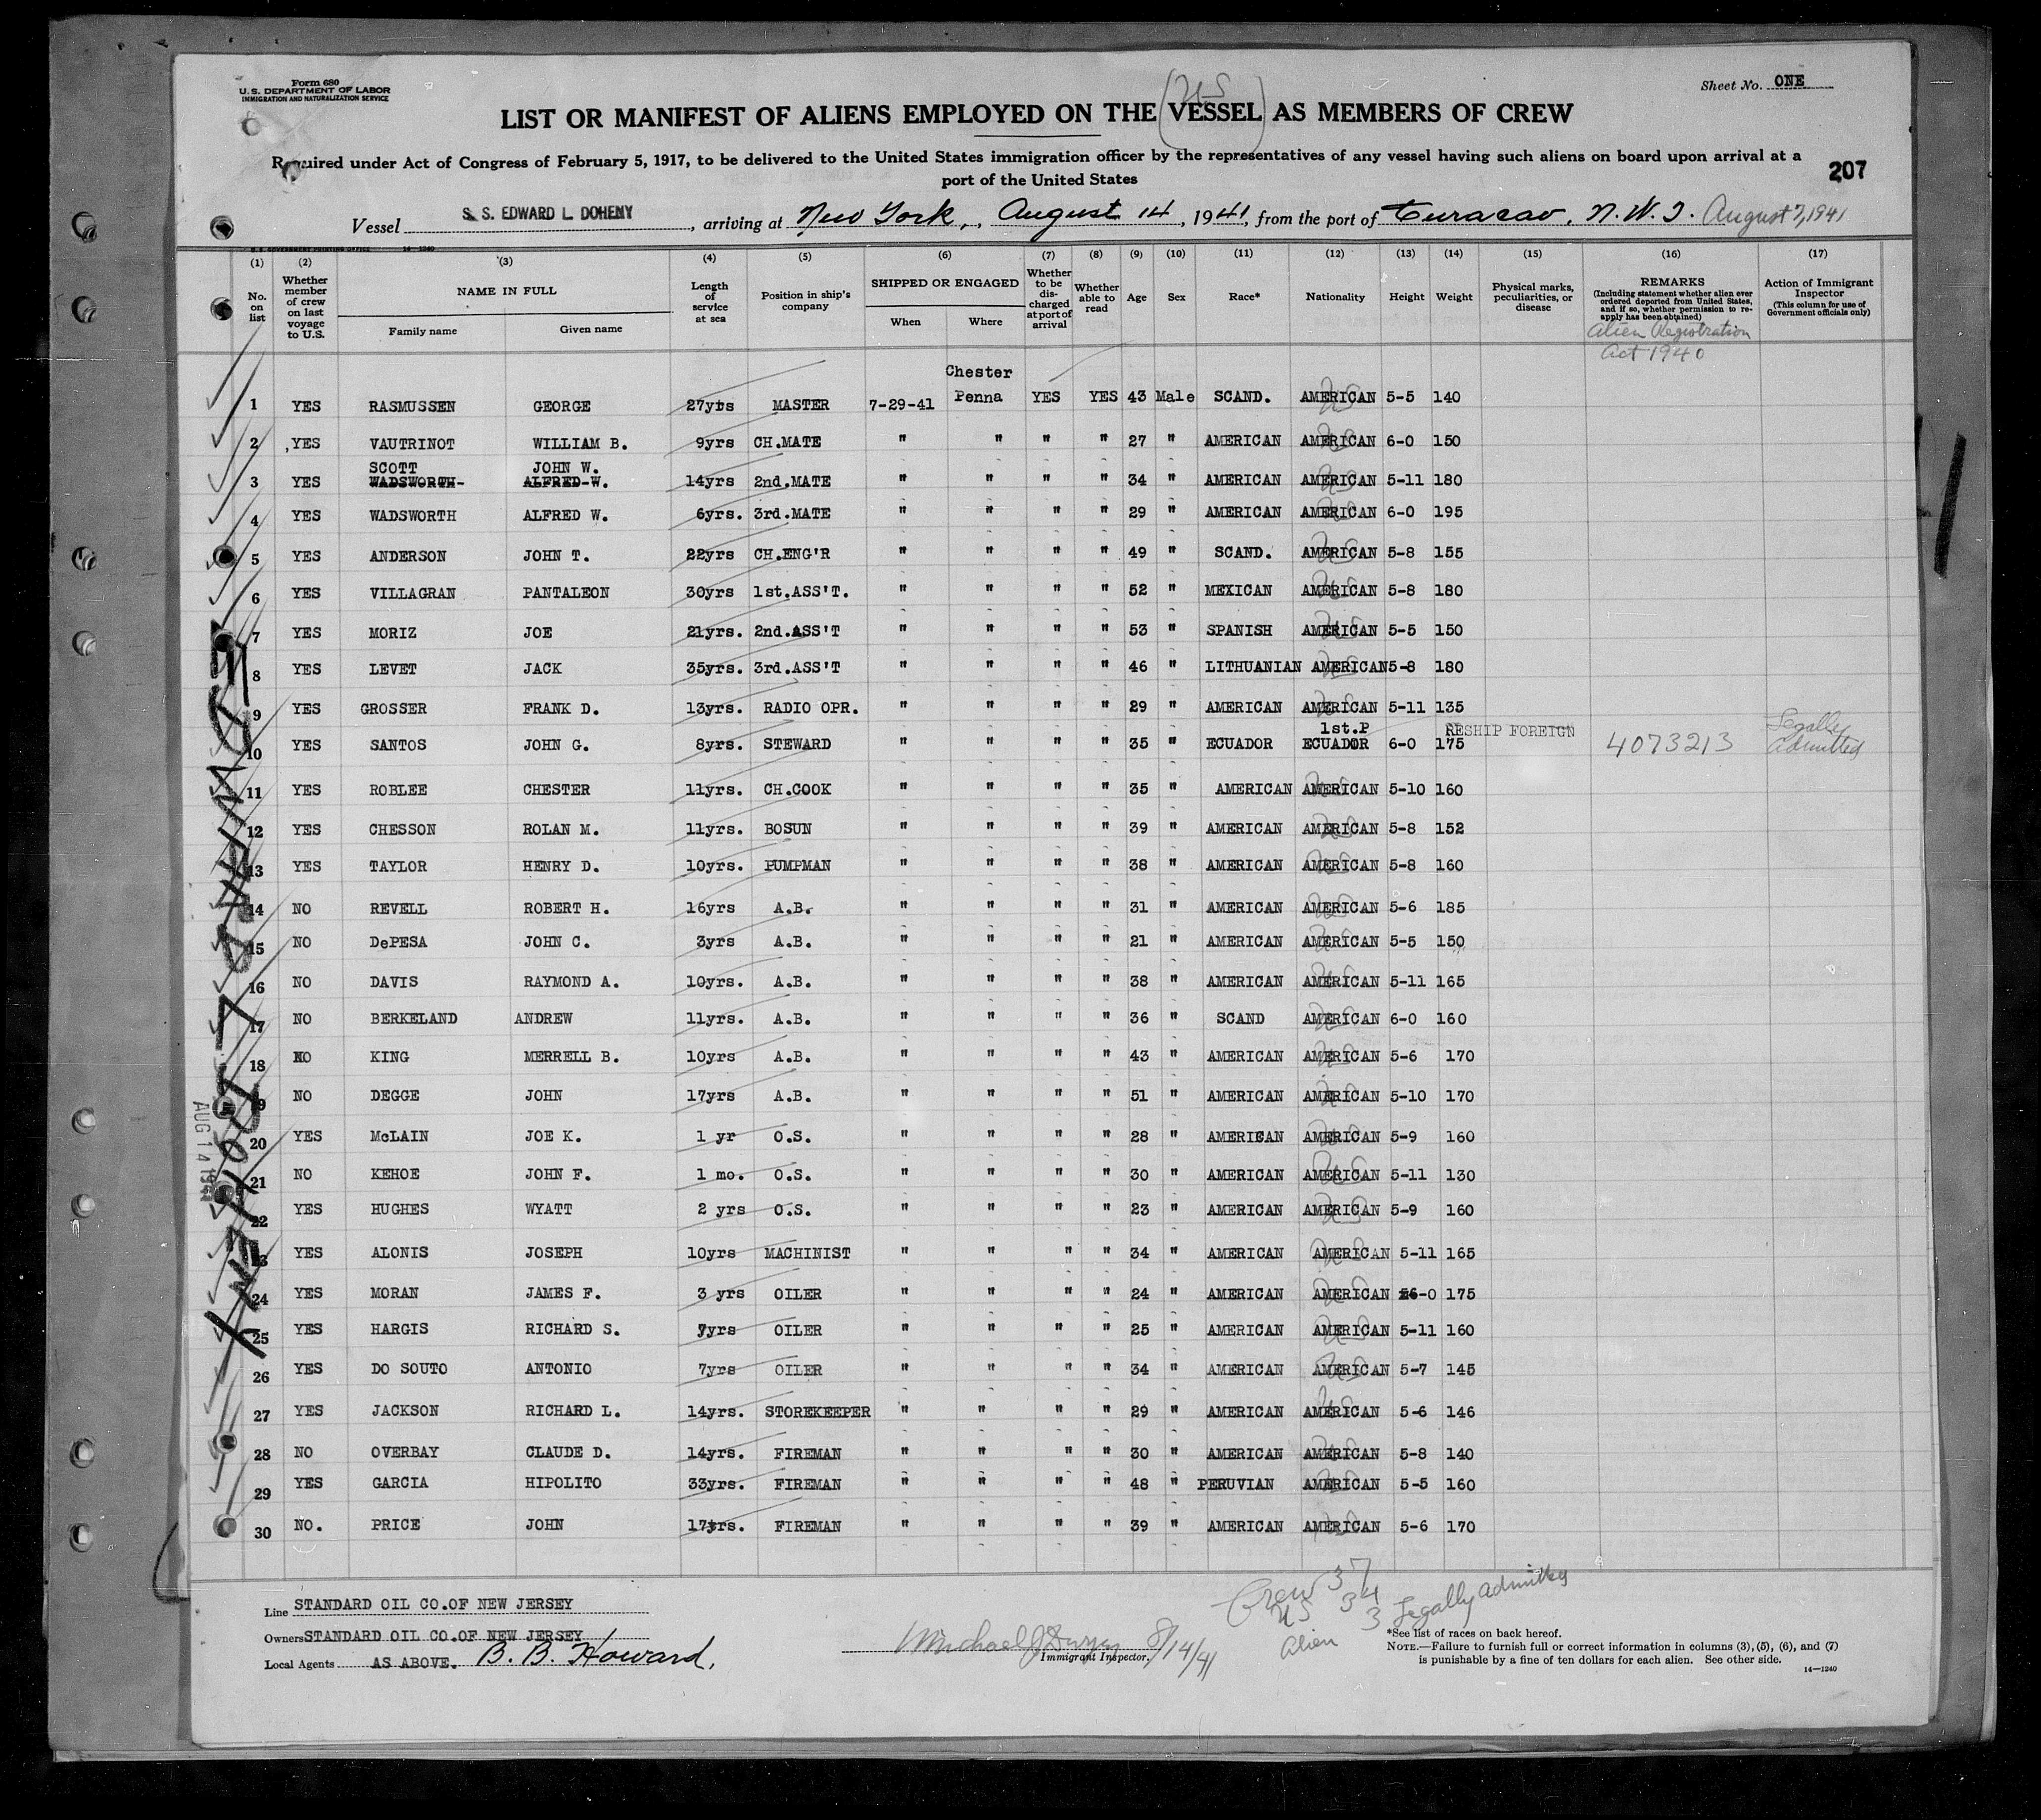 Form 680
U.S. DEPARTMENT OF LABOR
IMMIGRATION AND NATURALIZATION SERVICE
Sheet No. ONE
(US)
LIST OR MANIFEST OF ALIENS EMPLOYED ON THE VESSEL AS MEMBERS OF CREW
Required under Act of Congress of February 5, 1917, to be delivered to the United States immigration officer by the representatives of any vessel having such aliens on board upon arrival at a
port of the United States
207
Vessel S. S. EDWARD L. DOHENY, arriving at New York, August 14, 1941, from the port of Curacao, N. W. I. August 7, 1941
U. S. GOVERNMENT PRINTING OFFICE 14—1240
(1) No. on list
(2) Whether member of crew on last voyage to U.S.
(3) NAME IN FULL Family name Given name
(4) Length of service at sea
(5) Position in ship's company
(6) SHIPPED OR ENGAGED When Where
(7) Whether to be discharged at port of arrival
(8) Whether able to read
(9) Age
(10) Sex
(11) Race*
(12) Nationality
(13) Height
(14) Weight
(15) Physical marks, peculiarities, or disease
(16) REMARKS (Including statement whether alien ever ordered deported from United States, and if so, whether permission to reapply has been obtained)
Alien Registration Act 1940
(17) Action of Immigrant Inspector (This column for use of Government officials only)
1 YES RASMUSSEN GEORGE 27yrs MASTER 7-29-41 Chester Penna YES YES 43 Male SCAND. AMERICAN 5-5 140
2 YES VAUTRINOT WILLIAM B. 9yrs CH.MATE " " " " 27 " AMERICAN AMERICAN 6-0 150
SCOTT JOHN W.
3 YES WADSWORTH- ALFRED-W. 14yrs 2nd.MATE " " " " 34 " AMERICAN AMERICAN 5-11 180
4 YES WADSWORTH ALFRED W. 6yrs. 3rd.MATE " " " " 29 " AMERICAN AMERICAN 6-0 195
5 YES ANDERSON JOHN T. 22yrs CH.ENG'R " " " " 49 " SCAND. AMERICAN 5-8 155
6 YES VILLAGRAN PANTALEON 30yrs 1st.ASS'T. " " " " 52 " MEXICAN AMERICAN 5-8 180
7 YES MORIZ JOE 21yrs. 2nd.ASS'T " " " " 53 " SPANISH AMERICAN 5-5 150
8 YES LEVET JACK 35yrs. 3rd.ASS'T " " " " 46 " LITHUANIAN AMERICAN 5-8 180
9 YES GROSSER FRANK D. 13yrs. RADIO OPR. " " " " 29 " AMERICAN AMERICAN 5-11 135
10 YES SANTOS JOHN G. 8yrs. STEWARD " " " " 35 " ECUADOR 1st.P ECUADOR 6-0 175 RESHIP FOREIGN 4073213 Legally Admitted
11 YES ROBLEE CHESTER 11yrs. CH.COOK " " " " 35 " AMERICAN AMERICAN 5-10 160
12 YES CHESSON ROLAN M. 11yrs. BOSUN " " " " 39 " AMERICAN AMERICAN 5-8 152
13 YES TAYLOR HENRY D. 10yrs. PUMPMAN " " " " 38 " AMERICAN AMERICAN 5-8 160
14 NO REVELL ROBERT H. 16yrs A.B. " " " " 31 " AMERICAN AMERICAN 5-6 185
15 NO DePESA JOHN C. 3yrs A.B. " " " " 21 " AMERICAN AMERICAN 5-5 150
16 NO DAVIS RAYMOND A. 10yrs. A.B. " " " " 38 " AMERICAN AMERICAN 5-11 165
17 NO BERKELAND ANDREW 11yrs. A.B. " " " " 36 " SCAND AMERICAN 6-0 160
18 NO KING MERRELL B. 10yrs A.B. " " " " 43 " AMERICAN AMERICAN 5-6 170
19 NO DEGGE JOHN 17yrs A.B. " " " " 51 " AMERICAN AMERICAN 5-10 170
20 YES McLAIN JOE K. 1 yr O.S. " " " " 28 " AMERICAN AMERICAN 5-9 160
21 NO KEHOE JOHN F. 1 mo. O.S. " " " " 30 " AMERICAN AMERICAN 5-11 130
22 YES HUGHES WYATT 2 yrs O.S. " " " " 23 " AMERICAN AMERICAN 5-9 160
23 YES ALONIS JOSEPH 10yrs MACHINIST " " " " 34 " AMERICAN AMERICAN 5-11 165
24 YES MORAN JAMES F. 3 yrs OILER " " " " 24 " AMERICAN AMERICAN 6-0 175
25 YES HARGIS RICHARD S. 7yrs OILER " " " " 25 " AMERICAN AMERICAN 5-11 160
26 YES DO SOUTO ANTONIO 7yrs OILER " " " " 34 " AMERICAN AMERICAN 5-7 145
27 YES JACKSON RICHARD L. 14yrs. STOREKEEPER " " " " 29 " AMERICAN AMERICAN 5-6 146
28 NO OVERBAY CLAUDE D. 14yrs. FIREMAN " " " " 30 " AMERICAN AMERICAN 5-8 140
29 YES GARCIA HIPOLITO 33yrs. FIREMAN " " " " 48 " PERUVIAN AMERICAN 5-5 160
30 NO. PRICE JOHN 17yrs. FIREMAN " " " " 39 " AMERICAN AMERICAN 5-6 170
AUG 14 1941
Crew 37
US 34
Alien 3 Legally Admitted
Line STANDARD OIL CO.OF NEW JERSEY
Owners STANDARD OIL CO.OF NEW JERSEY
Local Agents AS ABOVE. B. B. Howard,
Michael J Dwyer 8/14/41
Immigrant Inspector.
*See list of races on back hereof.
NOTE.—Failure to furnish full or correct information in columns (3), (5), (6), and (7)
is punishable by a fine of ten dollars for each alien. See other side.
14—1240